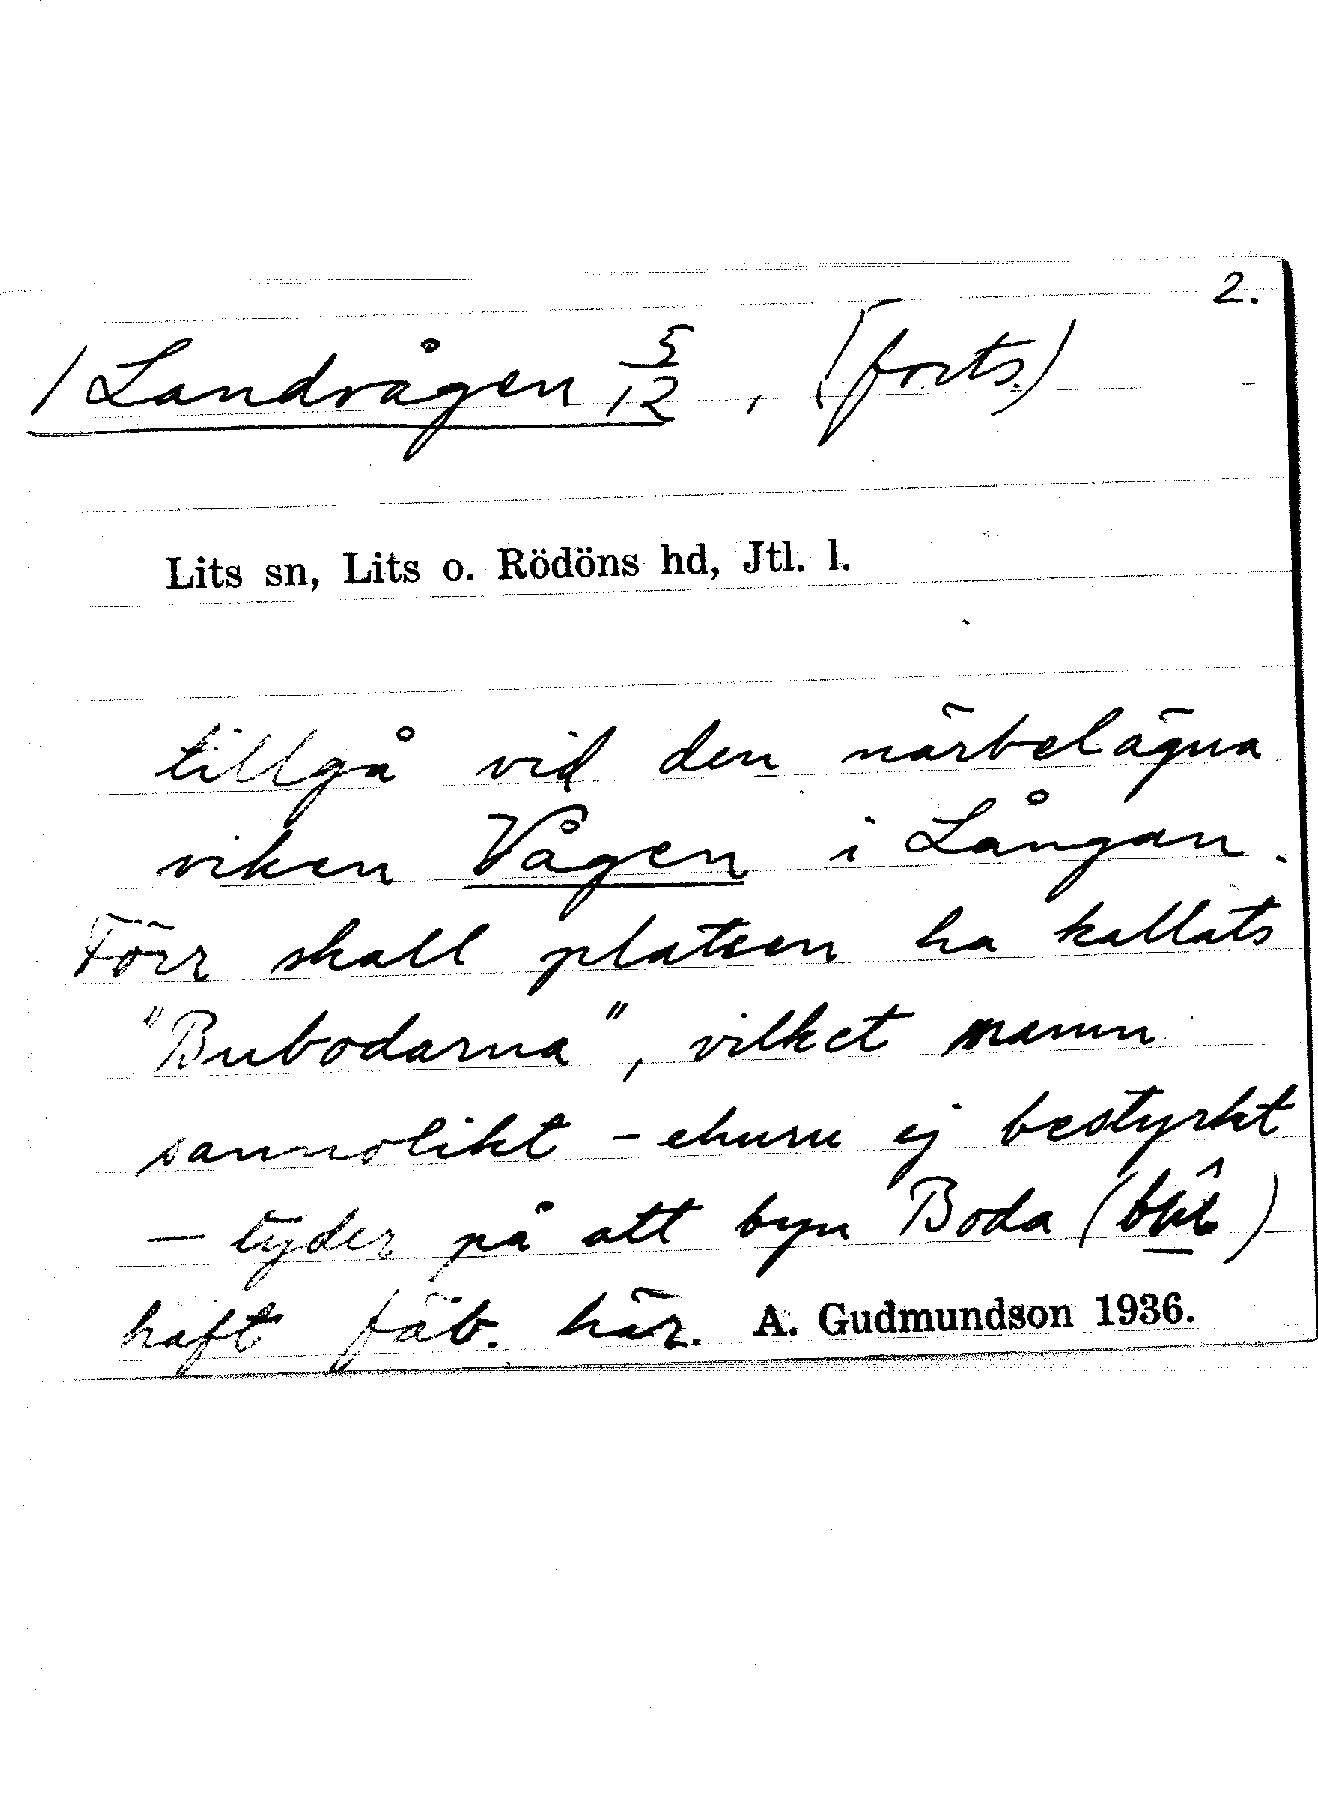 2.
/ Landvågen 5/12, (forts.)
Lits sn, Lits o. Rödöns hd, Jtl. l.
tillgå vid den närbelägna
viken Vågen i Långan.
Förr skall platsen ha kallats
"Bubodarna", vilket namn
sannolikt - ehuru ej bestyrkt
- tyder på att byn Boda
haft fäb. här. A. Gudmundson 1936.